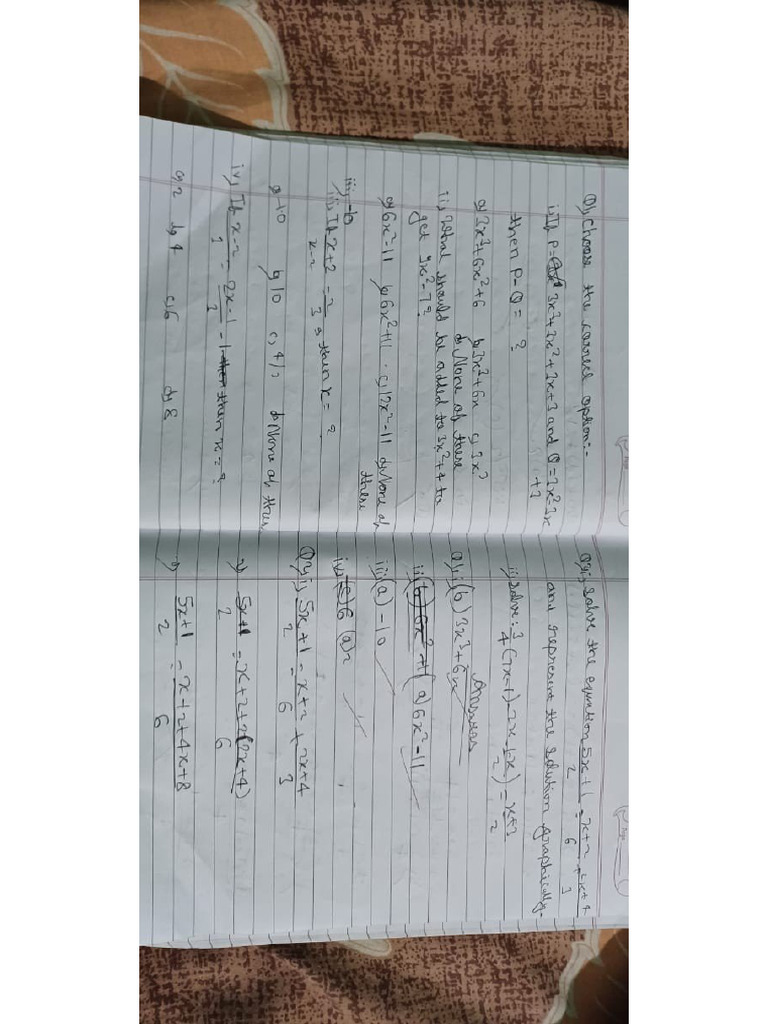 Q1, Choose the correct option:-
i, If P = 3x³+3x²+3x+3 and Q = 3x²-3x
+3
then P-Q = ?
a, 3x³+6x²+6 b, 3x³+6x c, 3x³
d, None of these
ii, What should be added to 3x²+4 to
get 9x²-7?
a, 6x²-11 b, 6x²+11 c, 12x²-11 d, None of
these
iii, If x+2/x-2 = 2/3, then x = ?
a, -10 b, 10 c, 4/2 d, None of these
iv, If x-2/1 = 2x-1/3 - 1 then x = ?
a, 2 b, 4 c, 6 d, 8
Q2, i, Solve the equation 5x+1/2 = x+2/6 + 2x+4/3
and represent the solution graphically.
ii, Solve: 3/4(7x-1)-(2x-1-x/2) = x+3/2
Answers
Q1, i (b) 3x³+6x
ii (a) 6x²-11
iii (a) -10
iv, (a) 2
Q2, i, 5x+1/2 = x+2/6 + 2x+4/3
⇒ 5x+1/2 = x+2+2(2x+4)/6
⇒ 5x+1/2 = x+2+4x+8/6